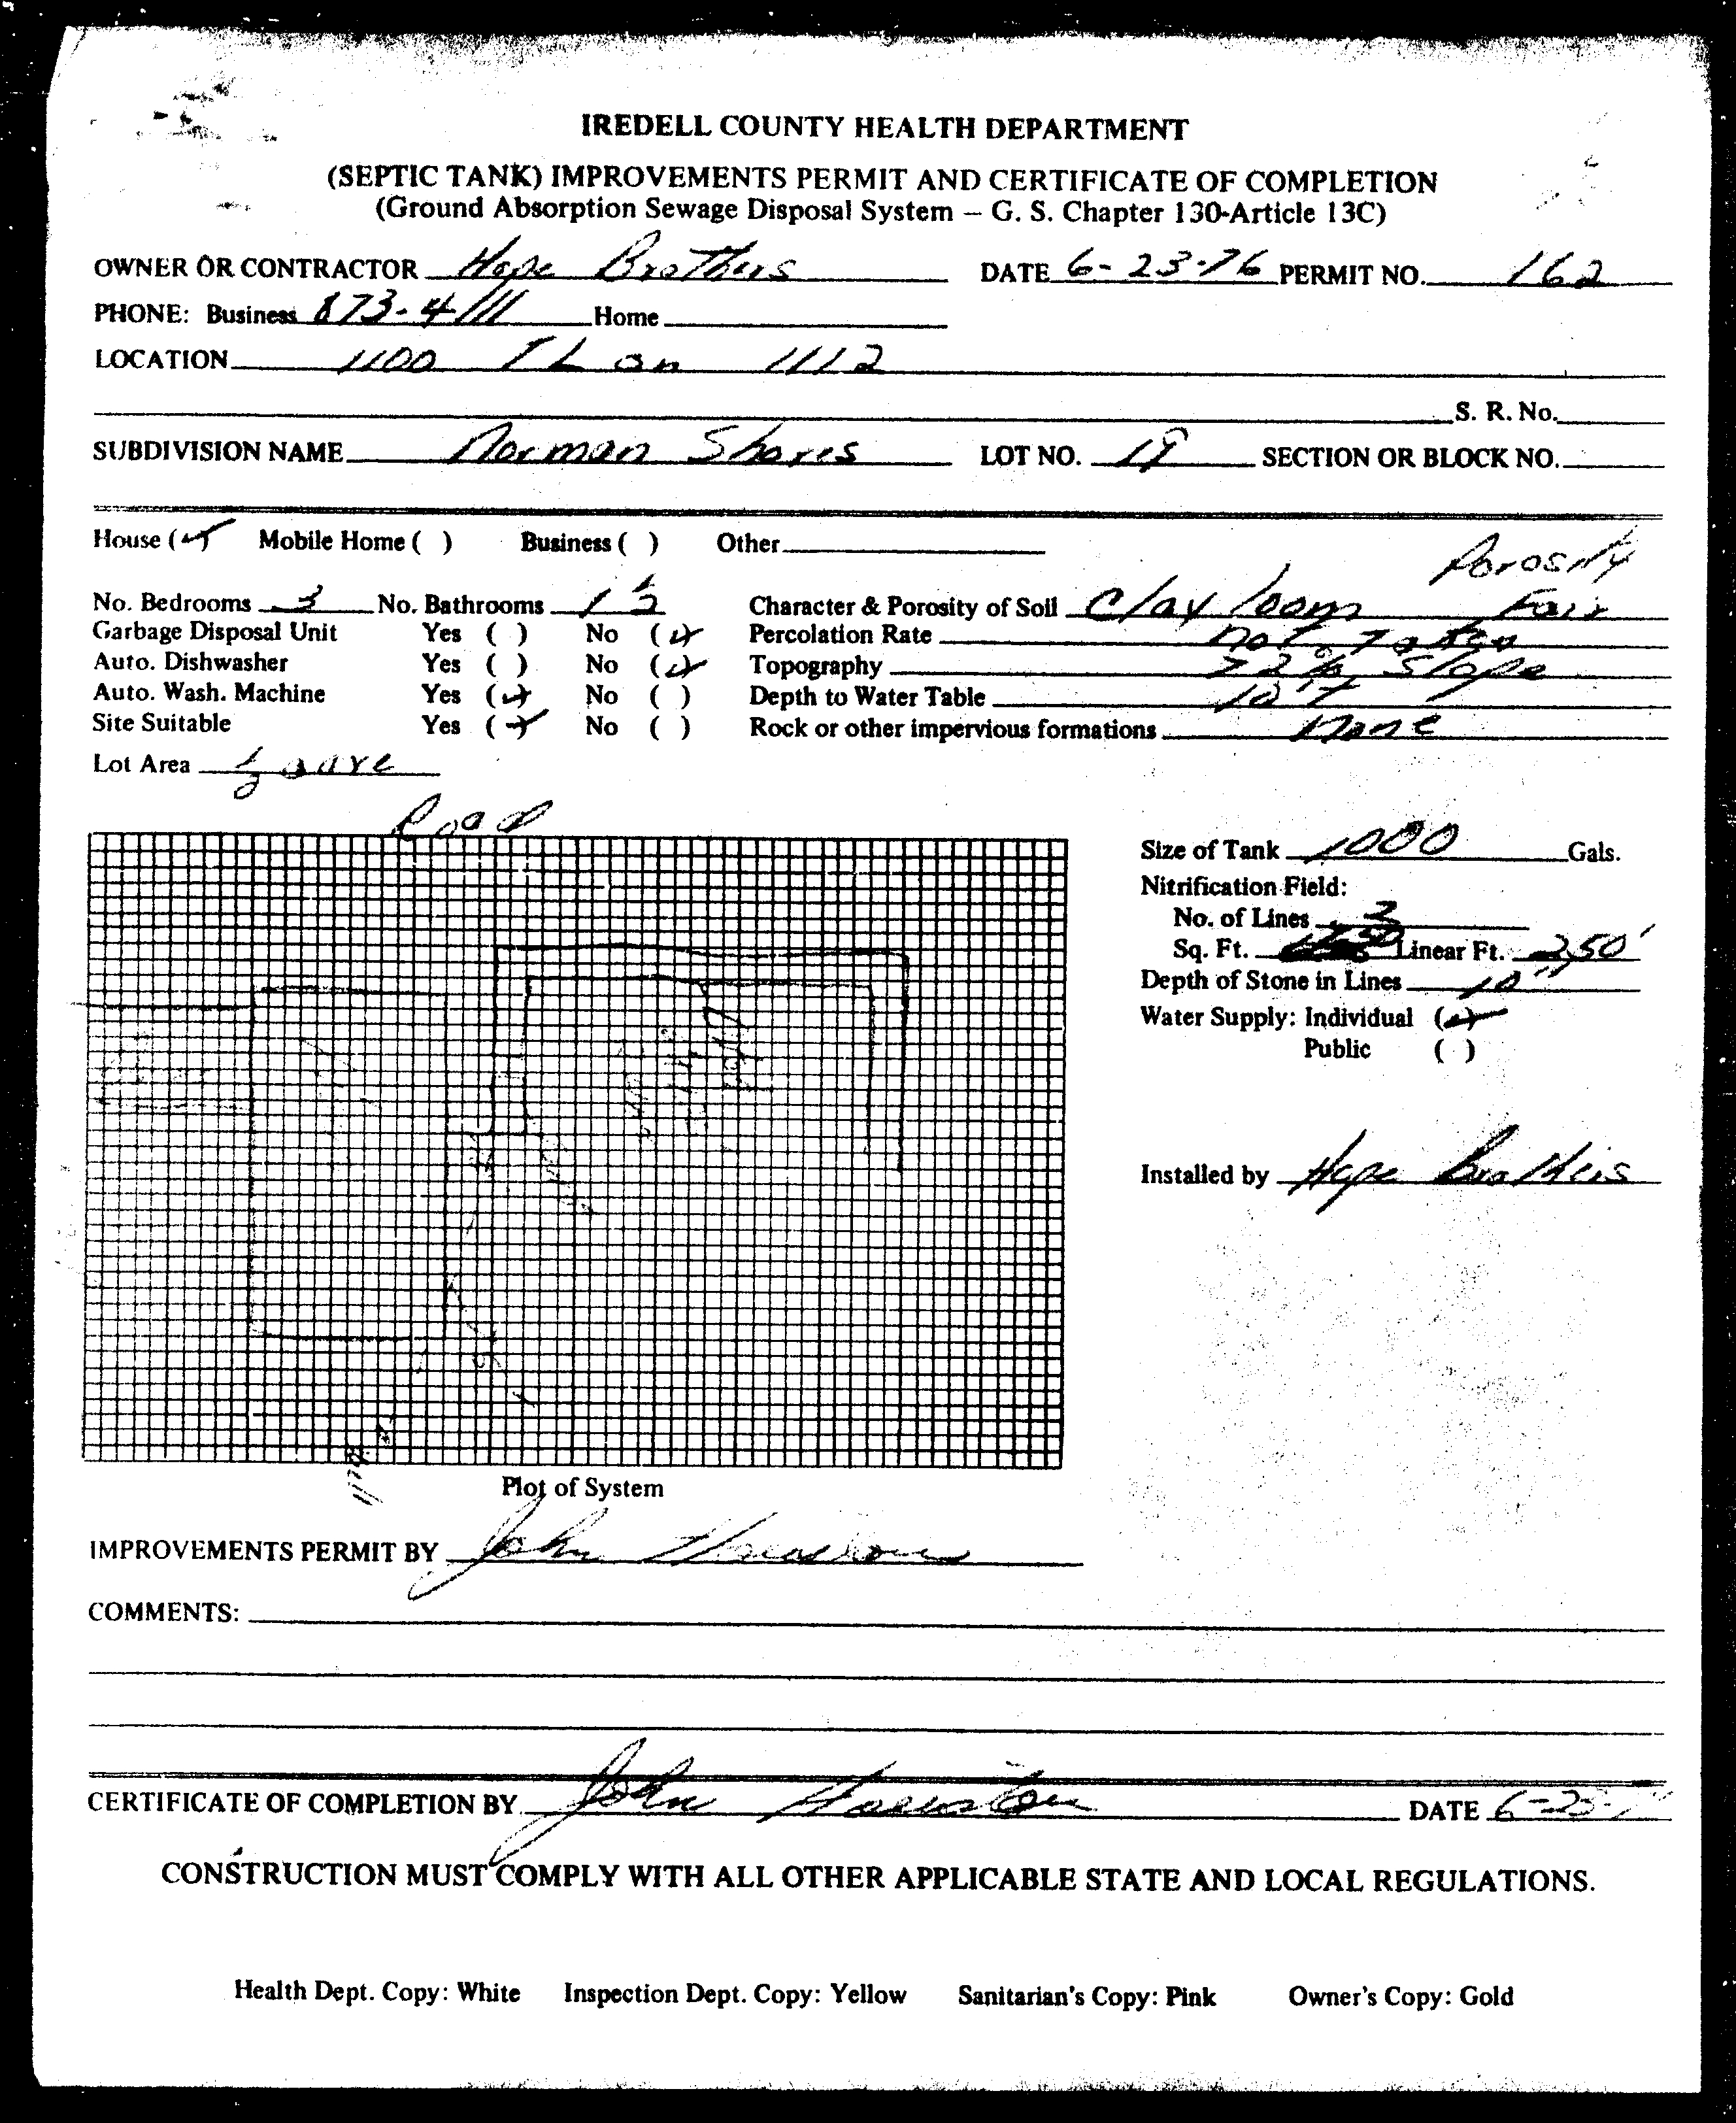 IREDELL COUNTY HEALTH DEPARTMENT
(SEPTIC TANK) IMPROVEMENTS PERMIT AND CERTIFICATE OF COMPLETION
(Ground Absorption Sewage Disposal System – G. S. Chapter 130-Article 13C)
OWNER OR CONTRACTOR Hope Brothers DATE 6-23-76 PERMIT NO. 162
PHONE: Business 873-4111 Home
LOCATION 1100 TL on 1112
S. R. No.
SUBDIVISION NAME Norman Shores LOT NO. 19 SECTION OR BLOCK NO.
House (✓) Mobile Home ( ) Business ( ) Other
Porosity
No. Bedrooms 3 No. Bathrooms 1 ½ Character & Porosity of Soil Clay loam Fair
Garbage Disposal Unit Yes ( ) No (✓) Percolation Rate not taken
Auto. Dishwasher Yes ( ) No (✓) Topography 22% Slope
Auto. Wash. Machine Yes (✓) No ( ) Depth to Water Table 10'+
Site Suitable Yes (✓) No ( ) Rock or other impervious formations none
Lot Area ½ acre
Road
Size of Tank 1000 Gals.
Nitrification Field:
No. of Lines 3
Sq. Ft. Linear Ft. 250'
Depth of Stone in Lines 10"
Water Supply: Individual (✓)
Public ( )
Installed by Hope Brothers
Plot of System
IMPROVEMENTS PERMIT BY John
COMMENTS:
CERTIFICATE OF COMPLETION BY John DATE 6-23-
CONSTRUCTION MUST COMPLY WITH ALL OTHER APPLICABLE STATE AND LOCAL REGULATIONS.
Health Dept. Copy: White Inspection Dept. Copy: Yellow Sanitarian's Copy: Pink Owner's Copy: Gold